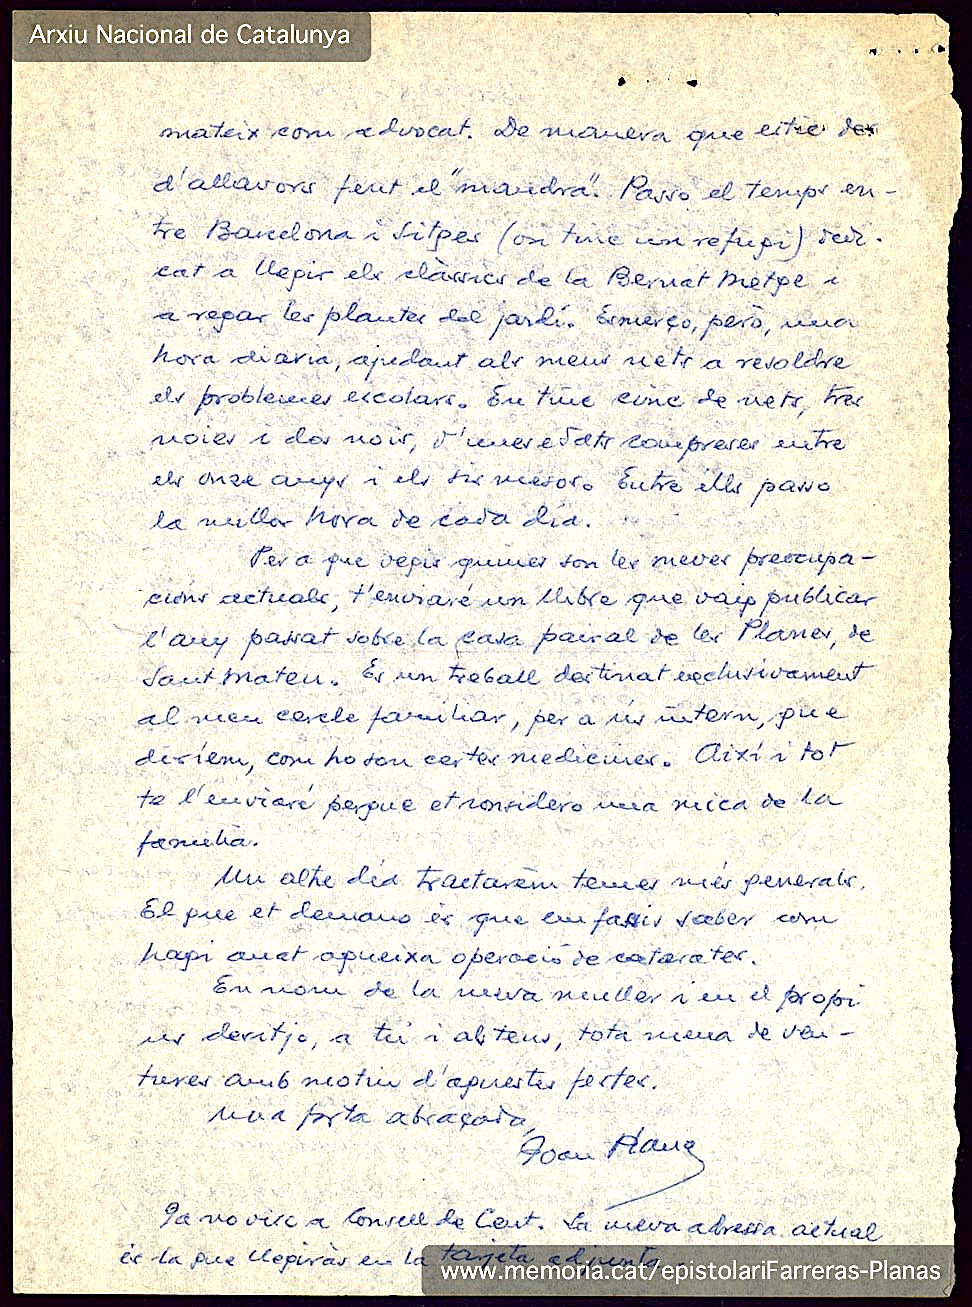 Arxiu Nacional de Catalunya
mateix com advocat. De manera que estic des
d'allavors fent el "mandra". Passo el temps en-
tre Barcelona i Sitges (on tinc un refugi) dedi-
cat a llegir els clàssics de la Bernat Metge i
a regar les plantes del jardí. Esmerço, però, una
hora diaria, ajudant als meus nets a resoldre
els problemes escolars. En tinc cinc de nets, tres
noies i dos nois, d'unes edats compreses entre
els onze anys i els sis mesos. Entre ells passo
la millor hora de cada dia.
Per a que vegis quines son les meves preocupa-
cions actuals, t'enviaré un llibre que vaig publicar
l'any passat sobre la casa pairal de les Planes, de
Sant Mateu. Es un treball destinat exclusivament
al meu cercle familiar, per a ús intern, que
diríem, com ho son certes medecines. Així i tot
te l'enviaré perque et considero una mica de la
familia.
Un altre dia tractarem temes més generals.
El que et demano és que em fassis saber com
hagi anat aqueixa operació de catarates.
En nom de la meva muller i en el propi
us desitjo, a tu i als teus, tota mena de ven-
tures amb motiu d'aquestes festes.
Una forta abraçada,
Joan Planas
Ja no visc a Consell de Cent. La meva adressa actual
és la que llegiràs en la tarjeta adjunta.
www.memoria.cat/epistolariFarreras-Planas